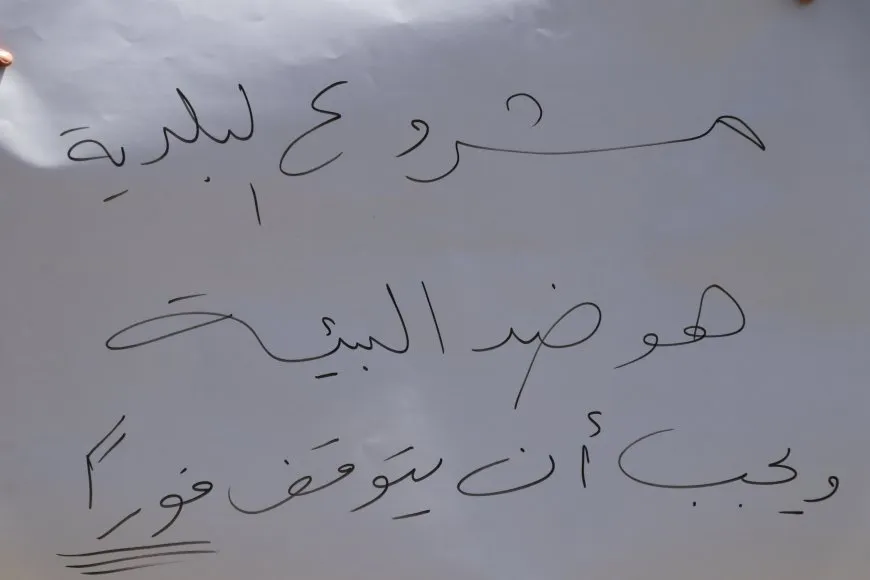 مشروع البلدية
هو ضد البيئة
ويجب أن يتوقف فوراً